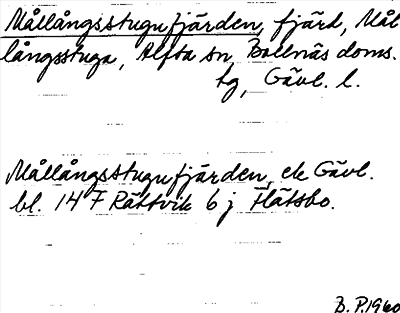 Mållångsstugufjärden, fjärd, Mål
långsstuga, Alfta sn, Bollnäs doms.
tg, Gävl. l.
Mållångsstugufjärden, ek Gävl.
bl. 147 Rättvik 6 j Flätsbo.
B. P. 1960